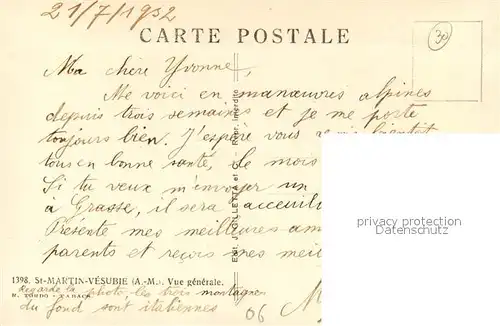 21/7/1932
30
CARTE POSTALE
Ma chère Yvonne,
Me voici en manœuvres alpines
depuis trois semaines et je me porte
toujours bien. J'espère vous
tous en bonne santé, le mois
Si tu veux m'envoyer un
à Grasse, il sera accueilli
Présente mes meilleures am
parents et reçois mes meil
privacy protection
datenschutz
Edit. J. GILETTA et Cie Repr. interdite
1398. St-MARTIN-VÉSUBIE (A.-M.). Vue générale.
Regarde la photo, les trois montagnes
du fond sont italiennes
06